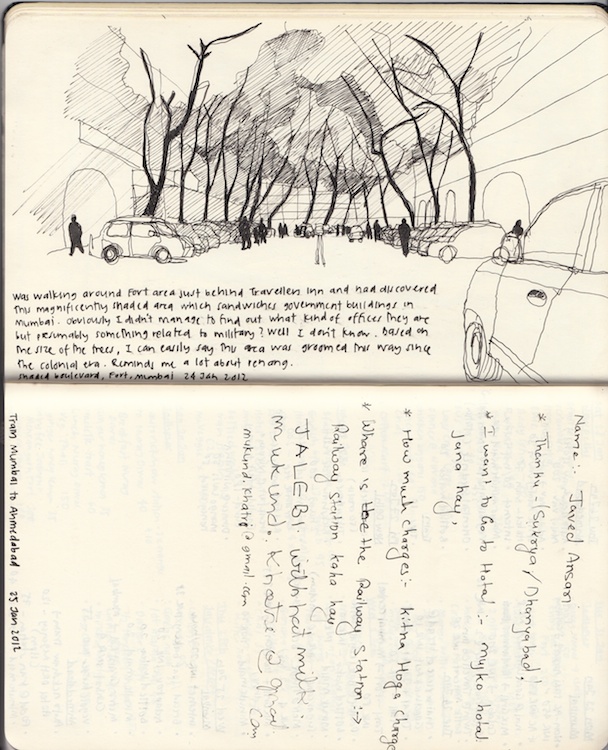 Was walking around Fort area just behind Travellers Inn and had discovered
this magnificently shaded area which sandwiches government buildings in
Mumbai. Obviously I didn't manage to find out what kind of offices they are
but presumably something related to military? Well I don't know. Based on
the size of the trees, I can easily say this area was groomed this way since
the colonial era. Reminds me a lot about Penang.
Shaded boulevard, Fort, Mumbai 24 Jan 2012
Name:- Javed Ansari
* Thanku - Sukrya / Dhanyabad!
* I want to Go to Hotal :- mujko hotal
Jana hay,
* How much charges:- kitna Hoga charge
* Where is the Railway Station:→
Railway Station kaha hay
JALEBI with hot milk.
mukund.khatre@gmail.
com
mukund.khatre@gmail.com
Train Mumbai to Ahmedabad 25 Jan 2012